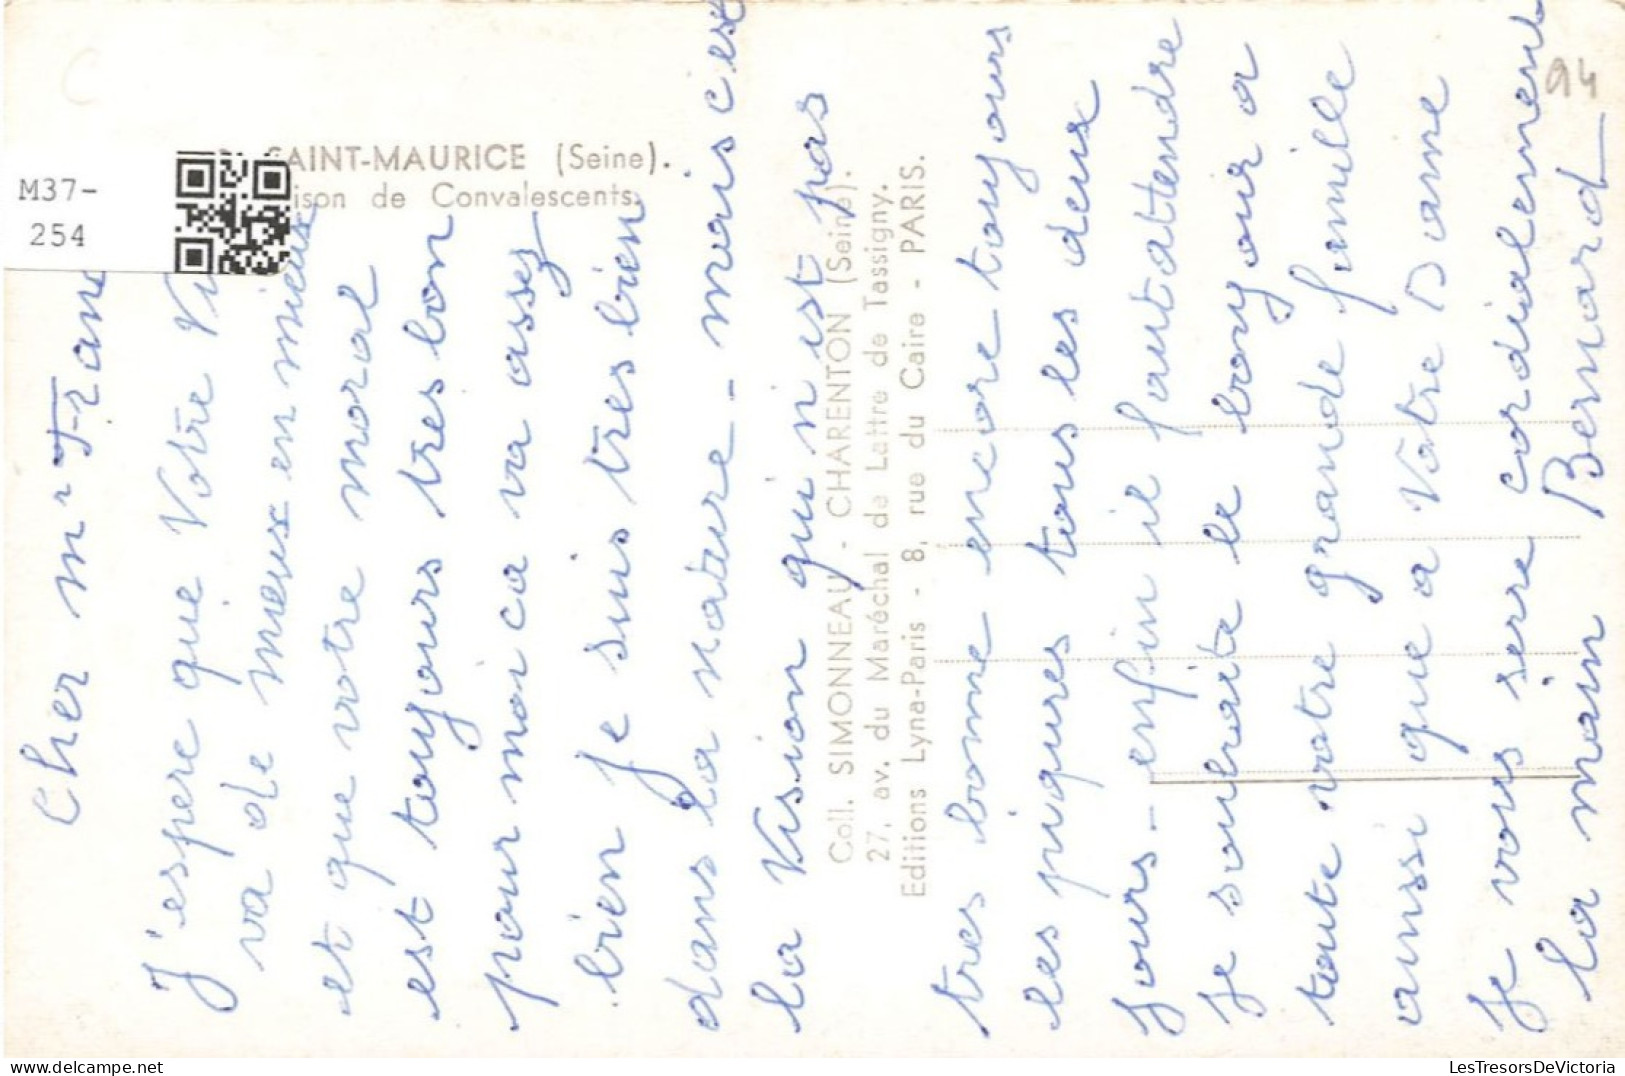 94
SAINT-MAURICE (Seine).
ison de Convalescents.
M37-
254
Cher mr Franc
J'espere que Votre Vu
va de mieux en mieux
et que votre moral
est toujours tres bon
pour moi ca va assez
bien je suis tres bien
dans la nature - mais c'est
la Vision qui n'est pas
tres bonne encore toujours
les piqures tous les deux
jours - enfin il faut attendre
je souhaite le bonjour a
toute votre grande famille
aussi que a Votre Dame
je vous serre cordialement
la main Bernard
Coll. SIMONNEAU - CHARENTON (Seine).
27, av. du Maréchal de Lattre de Tassigny.
Editions Lyna-Paris - 8, rue du Caire - PARIS.
LesTresorsDeVictoria